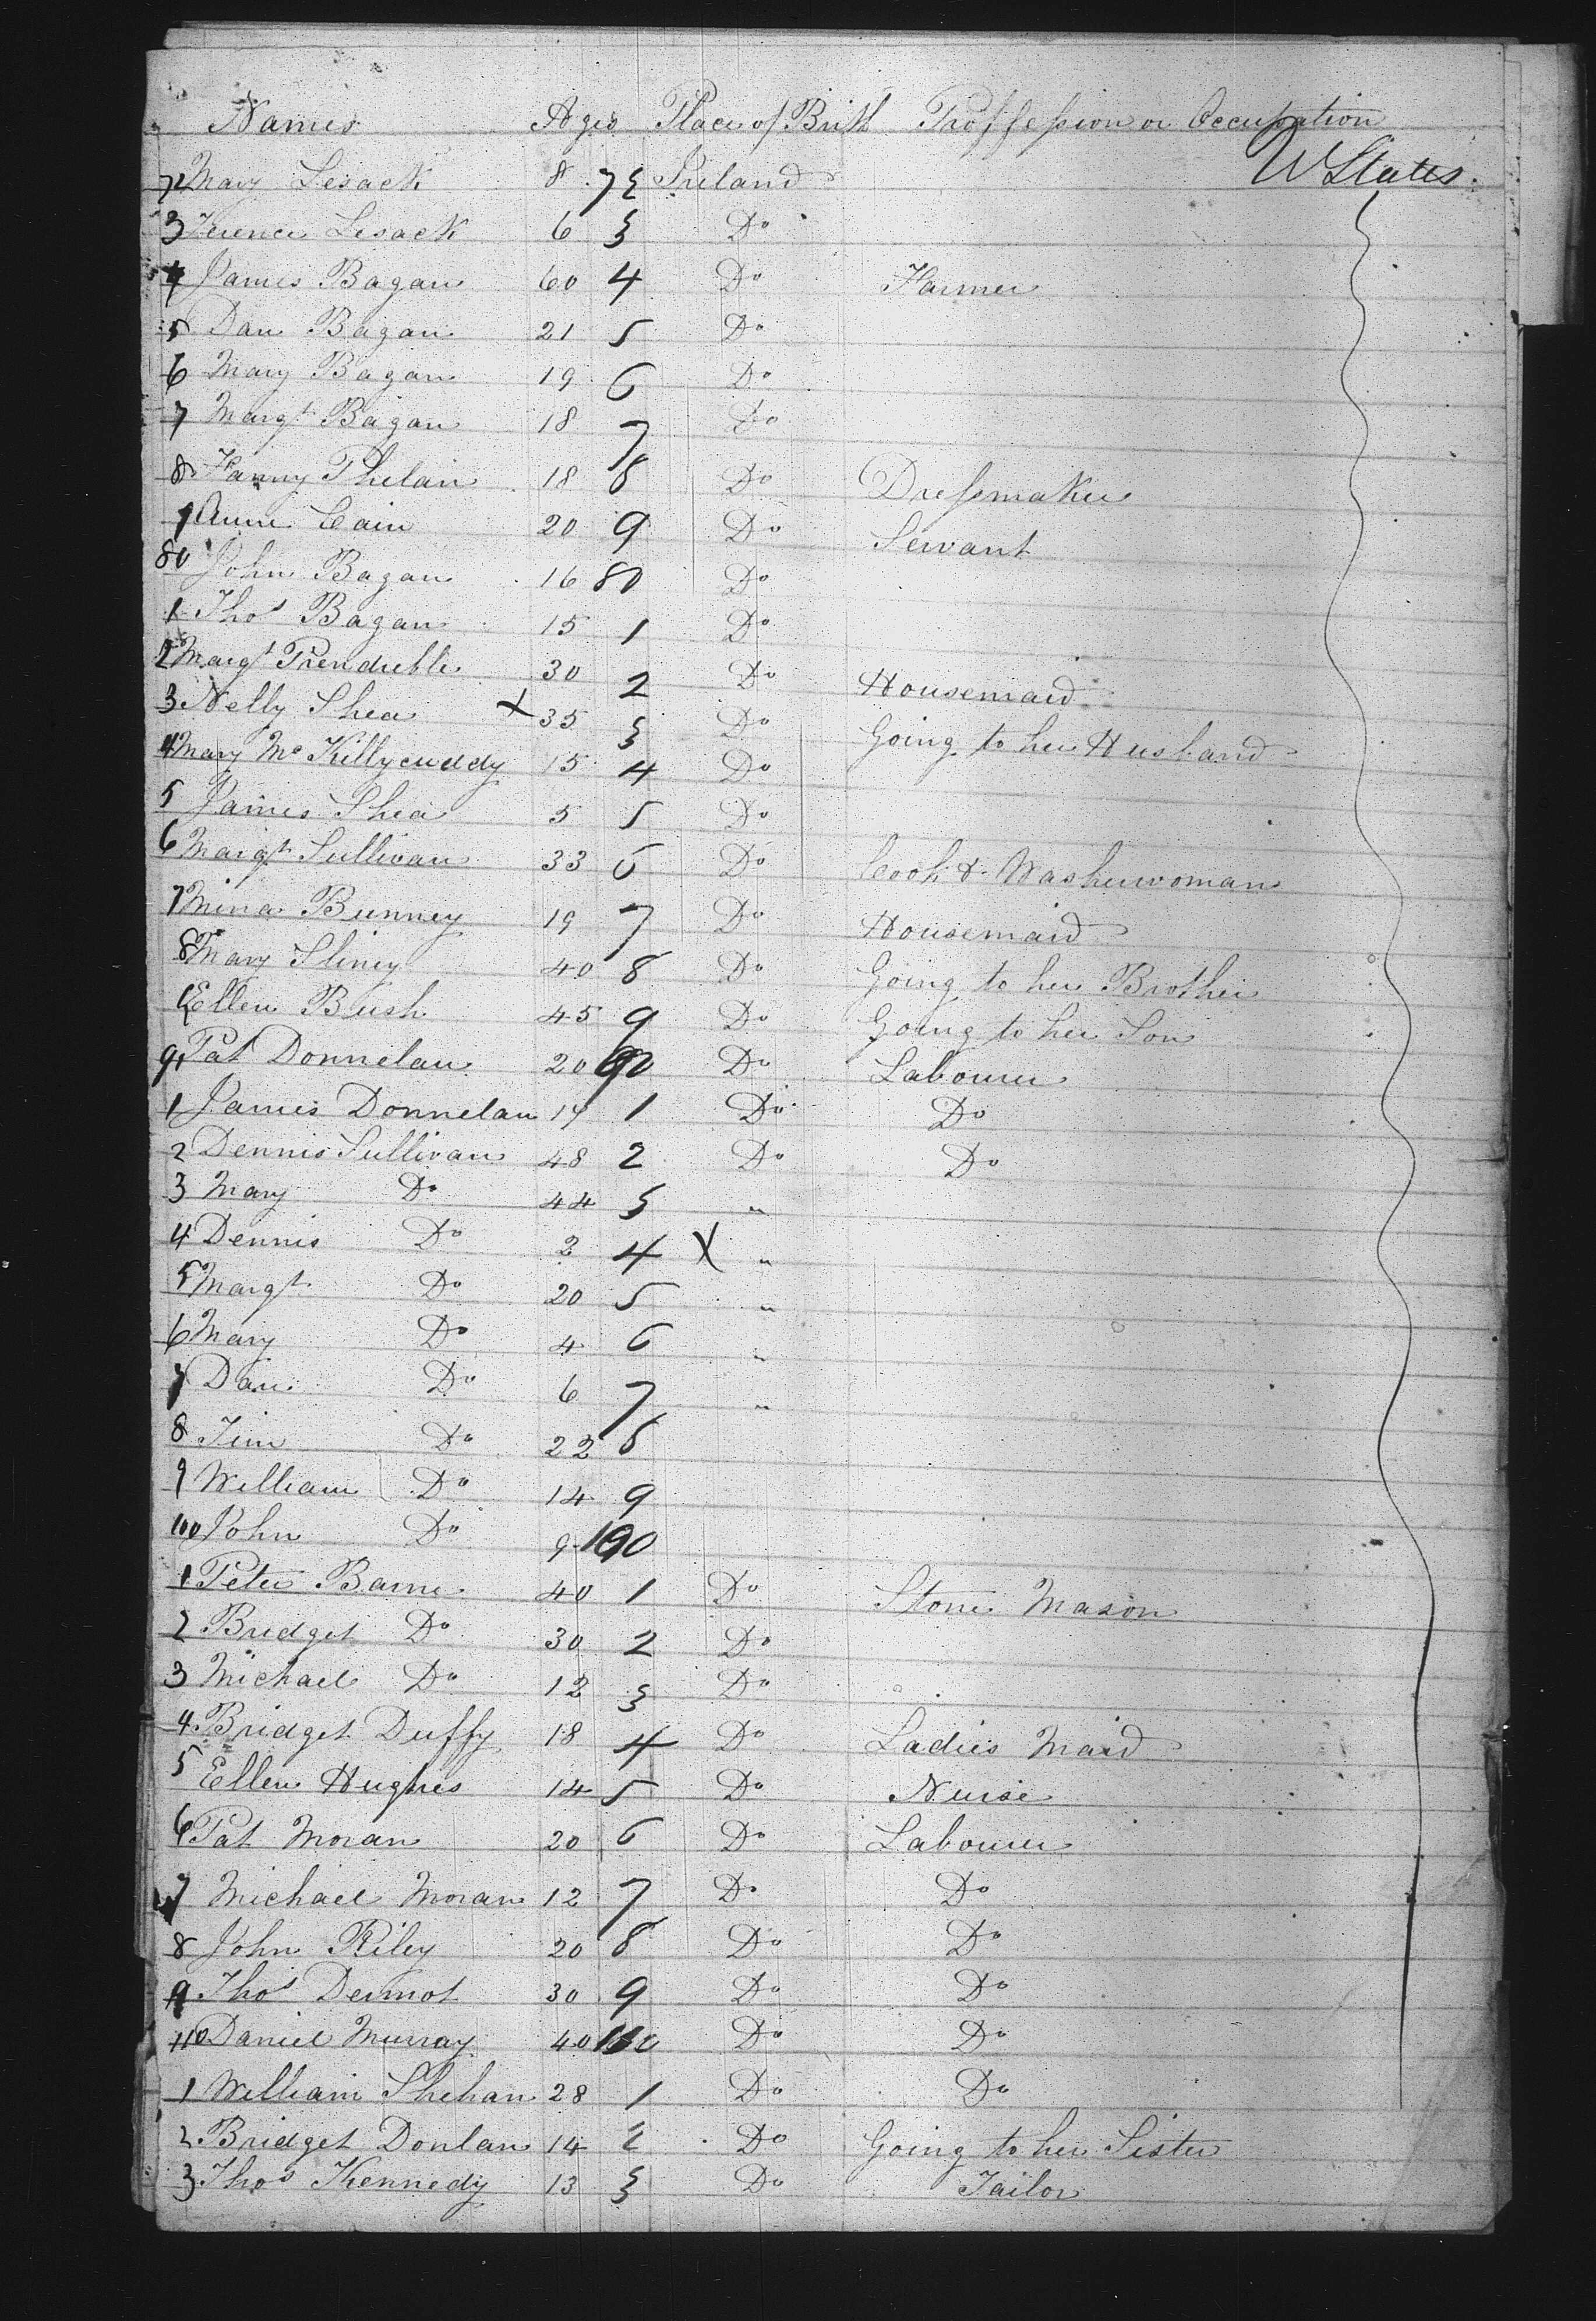 Names Ages Place of Brith Proffession or Occupation
U States.
72 Mary Lesack 8 72 Ireland
3 Terence Lesack 6 3 Do
4 James Bagan 60 4 Do Farmer
5 Dan Bagan 21 5 Do
6 Mary Bagan 19 6 Do
7 Margt Bagan 18 7 Do
8 Fanny Phelan 18 8 Do Dressmaker
9 Anne Cain 20 9 Do Servant
80 John Bagan 16 80 Do
1 Thos Bagan 15 1 Do
2 Margt Prendible 30 2 Do Housemaid
3 Nelly Shea X 35 3 Do Going to her Husband
4 Mary Mc Killycuddy 15 4 Do
5 James Shea 5 5 Do
6 Margt Sullivan 33 6 Do Cook & Washerwoman
7 Mina Bunney 19 7 Do Housemaid
8 Mary Sliney 40 8 Do Going to her Brother
9 Ellen Bush 45 9 Do Going to her Son
90 Pat Donnelan 20 90 Do Labourer
1 James Donnelan 17 1 Do Do
2 Dennis Sullivan 48 2 Do Do
3 Mary Do 44 3 "
4 Dennis Do 2 4 X "
5 Margt Do 20 5 "
6 Mary Do 4 6 "
7 Dan Do 6 7 "
8 Jim Do 22 8
9 William Do 14 9
100 John Do 9 100
1 Peter Barne 40 1 Do Stone Mason
2 Bridget Do 30 2 Do
3 Michael Do 12 3 Do
4 Bridget Duffy 18 4 Do Ladies Maid
5 Ellen Hughes 14 5 Do Nurse
6 Pat Moran 20 6 Do Labourer
7 Michael Moran 12 7 Do Do
8 John Riley 20 8 Do Do
9 Thos Dermot 30 9 Do Do
110 Daniel Murray 40 110 Do Do
1 William Shehan 28 1 Do Do
2 Bridget Donlan 14 2 Do Going to her Sister
3 Thos Kennedy 13 3 Do Tailor